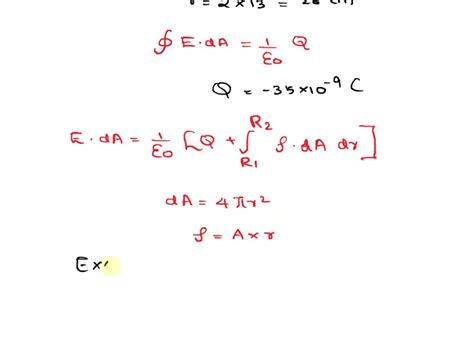 = 2 × 13 = 26 cm
∮ E · dA = 1/ε0 Q
Q = -35 × 10^-9 C
E · dA = 1/ε0 [Q + ∫_R1^R2 ρ · dA dr]
dA = 4πr²
ρ = A × r
E ×